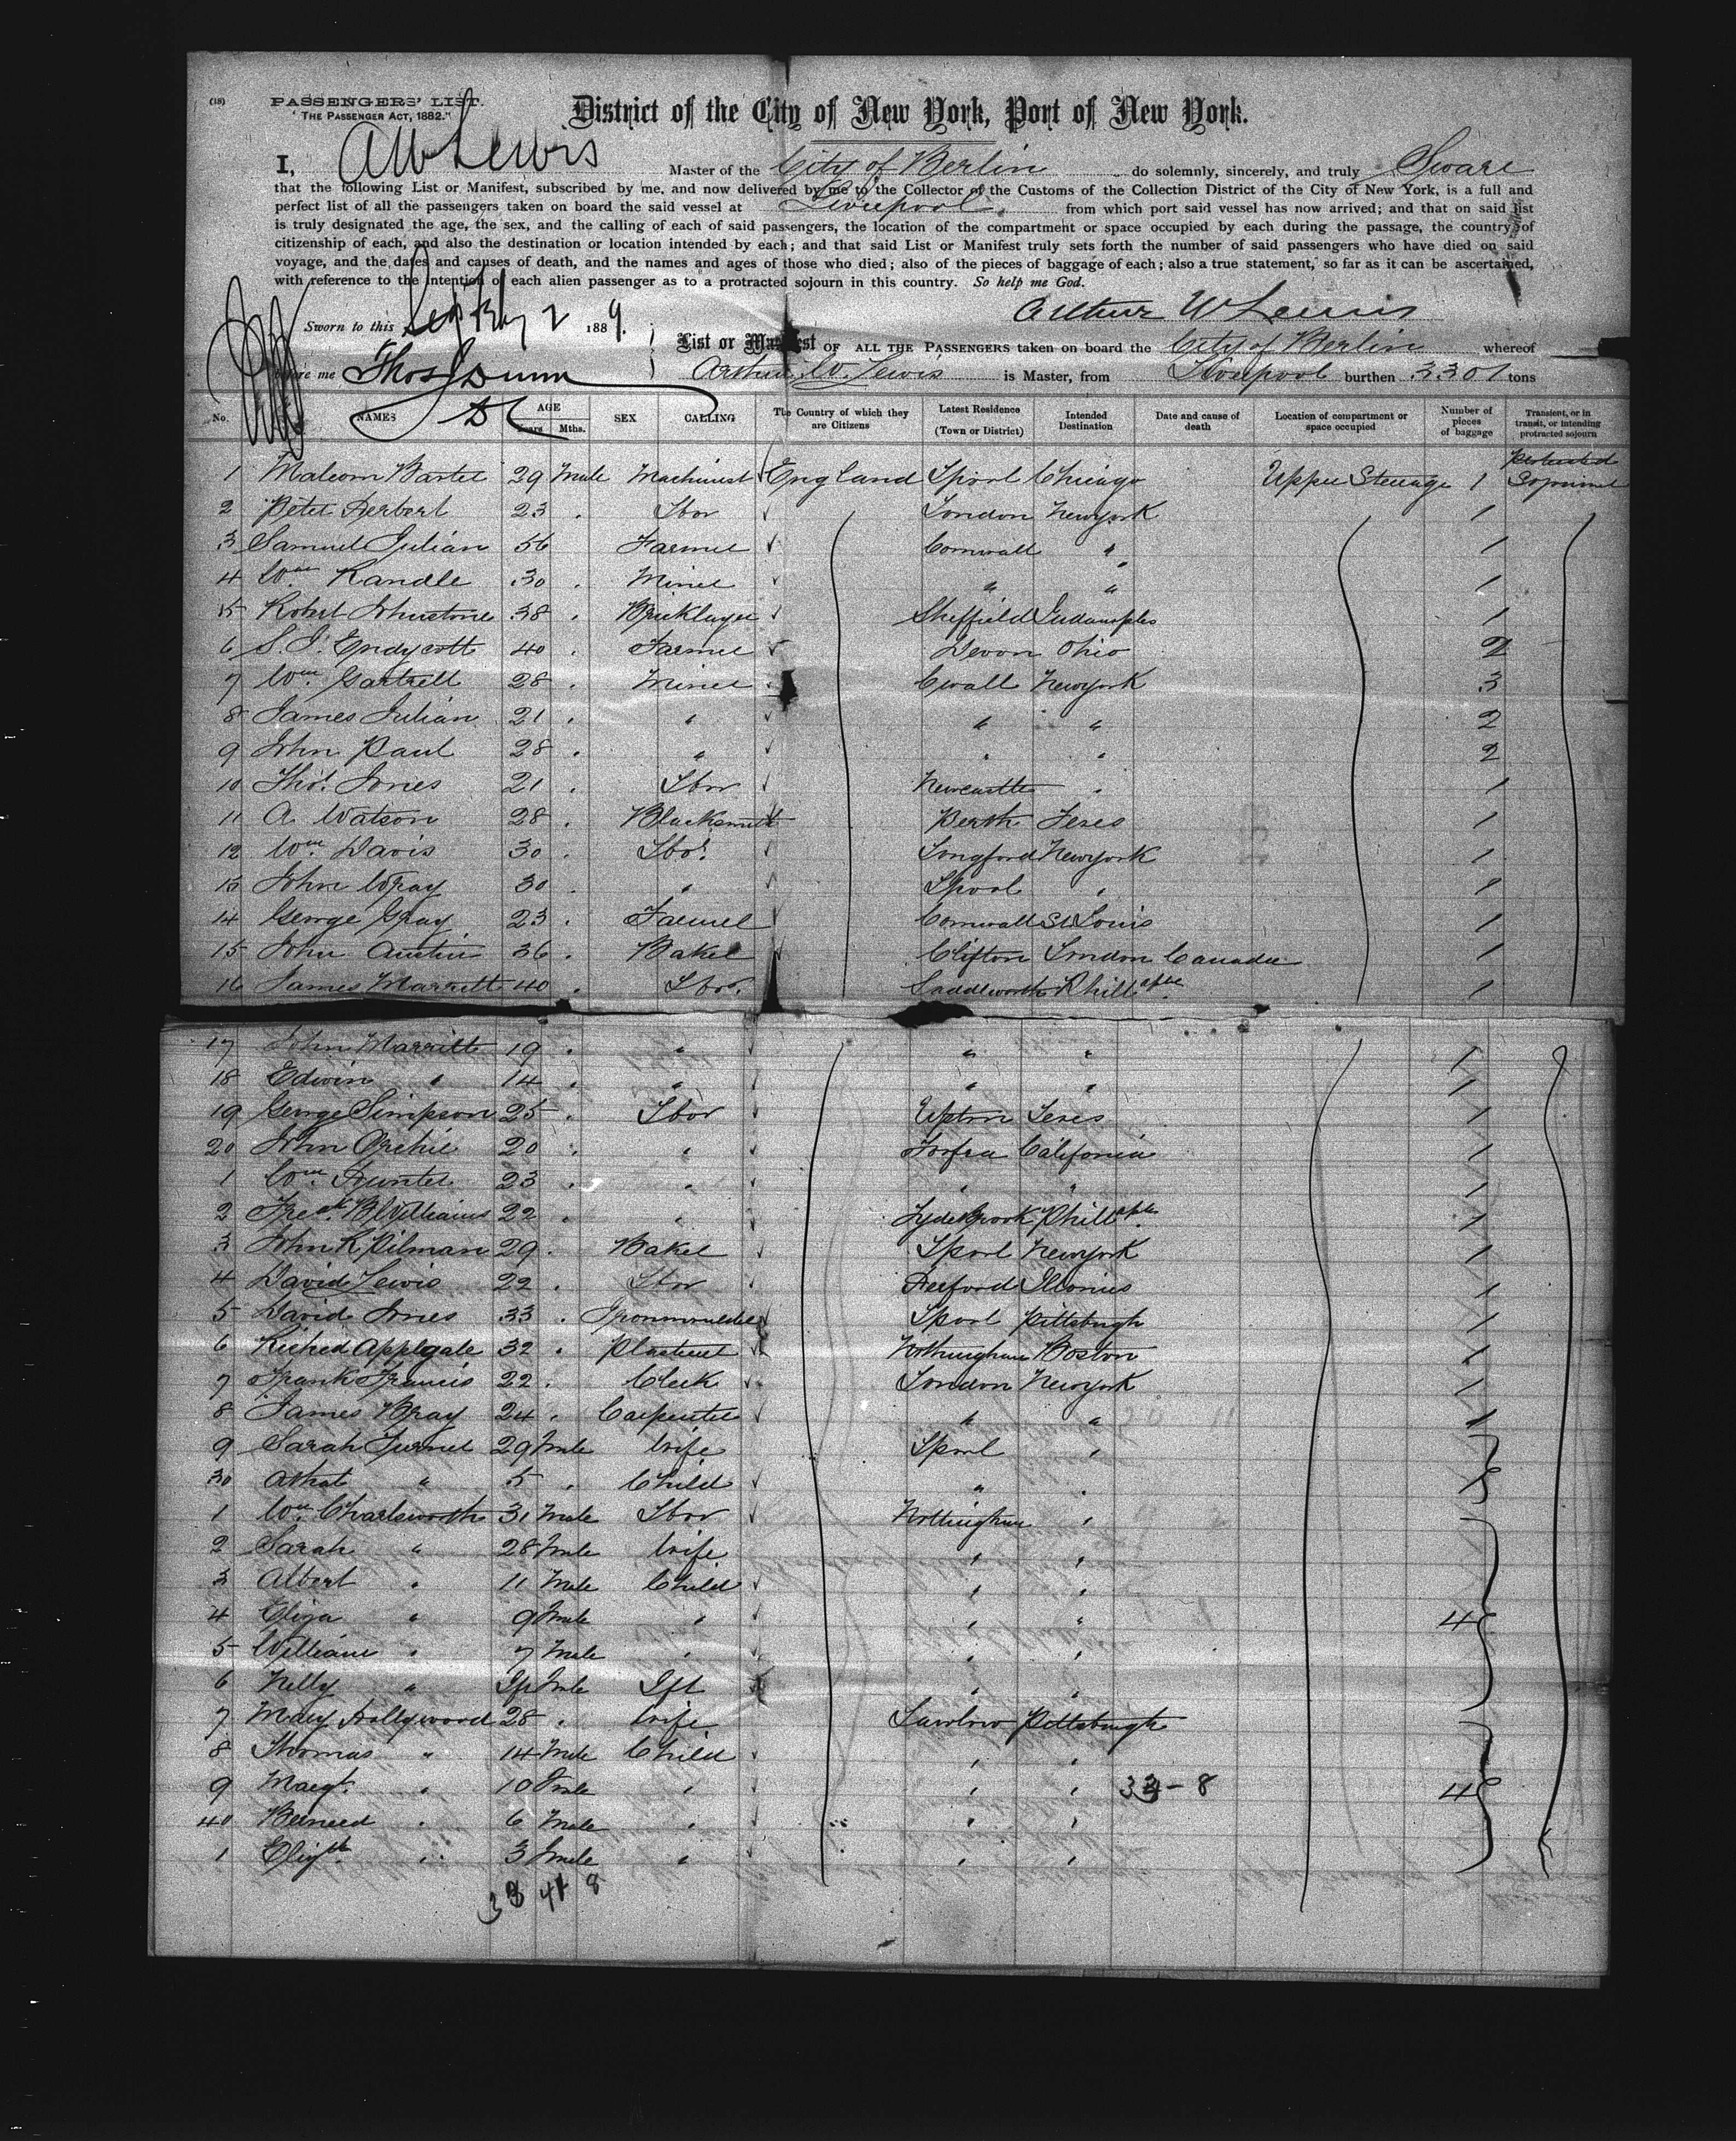 (18) PASSENGERS' LIST.
"THE PASSENGER ACT, 1882."
District of the City of New York, Port of New York.
I, AW Lewis Master of the City of Berlin do solemnly, sincerely, and truly Sware
that the following List or Manifest, subscribed by me, and now delivered by me to the Collector of the Customs of the Collection District of the City of New York, is a full and
perfect list of all the passengers taken on board the said vessel at Liverpool, from which port said vessel has now arrived; and that on said list
is truly designated the age, the sex, and the calling of each of said passengers, the location of the compartment or space occupied by each during the passage, the country of
citizenship of each, and also the destination or location intended by each; and that said List or Manifest truly sets forth the number of said passengers who have died on said
voyage, and the dates and causes of death, and the names and ages of those who died; also of the pieces of baggage of each; also a true statement, so far as it can be ascertained,
with reference to the intention of each alien passenger as to a protracted sojourn in this country. So help me God.
Arthur W Lewis
Sworn to this 2 1889.
List or Manifest OF ALL THE PASSENGERS taken on board the City of Berlin whereof
before me Thos Dunn Arthur W. Lewis is Master, from Liverpool burthen 3301 tons
No. NAMES AGE Years Mths. SEX CALLING The Country of which they are Citizens Latest Residence (Town or District) Intended Destination Date and cause of death Location of compartment or space occupied Number of pieces of baggage Transient, or in transit, or intending protracted sojourn
1 Malcom Barter 29 Male Machinist England Lpool Chicago Upper Steerage 1 Protracted Sojourn
2 Peter Herbert 23 " Lbor London Newyork 1
3 Samuel Julian 56 Farmer Cornwall " 1
4 Wm Randle 30 " Miner " " 1
5 Robert Johnstone 38 " Bricklayer Sheffield 1
6 S. J. Endycott 40 " Farmer Devon Ohio 2
7 Wm Gartrell 28 " Miner Cwall Newyork 3
8 James Julian 21 " " " " 2
9 John Paul 28 " " " " 2
10 Thos. Jones 21 " Lbor Newcastle " 1
11 A Watson 28 " Blacksmith Perth Texes 1
12 Wm Davis 30 " Lbor. Longford Newyork 1
13 John Wray 30 " " Lpool " 1
14 George Gray 23 " Farmer Cornwall St Louis 1
15 John Austin 36 " Baker Clifton London Canada 1
16 James Marritt 40 " Lbor. Saddleworth Phill 1
17 John Marritt 19 " " " " 1
18 Edwin " 14 " " " " 1
19 George Simpson 25 " Lbor Upton Texes 1
20 John Archie 20 " " Forfra Califonia 1
1 Wm Hunter 23 " " " " 1
2 Fredk B Williams 22 " " Lydebrook Phill 1
3 John K Pilman 29 " Baker Lpool Newyork 1
4 David Lewis 22 " Lbor 1
5 David Jones 33 " Ironmoulder Lpool Pittsburgh 1
6 Riched Applegate 32 " Plasterer Nottingham Boston 1
7 Frank Francis 22 " Clerk London Newyork 1
8 James Bray 24 " Carpenter " " 1
9 Sarah Turner 29 Fmle Wife Lpool "
30 " 5 " Child " "
1 Wm Charlsworth 31 Male Lbor Nottingham "
2 Sarah " 28 Fmle Wife " "
3 Albert " 11 Male Child " "
4 Eliza " 9 Fmle " " " 4
5 William " 7 Male " " "
6 Nelly " Ift Fmle Ift " "
7 Mary Hollywood 28 " Wife Pittsburgh
8 Thomas " 14 Male Child " "
9 Margt. " 10 Fmle " " " 33-8 4
40 Berneed " 6 Male " " "
1 Elizth " 3 Fmle " " "
33 41 8